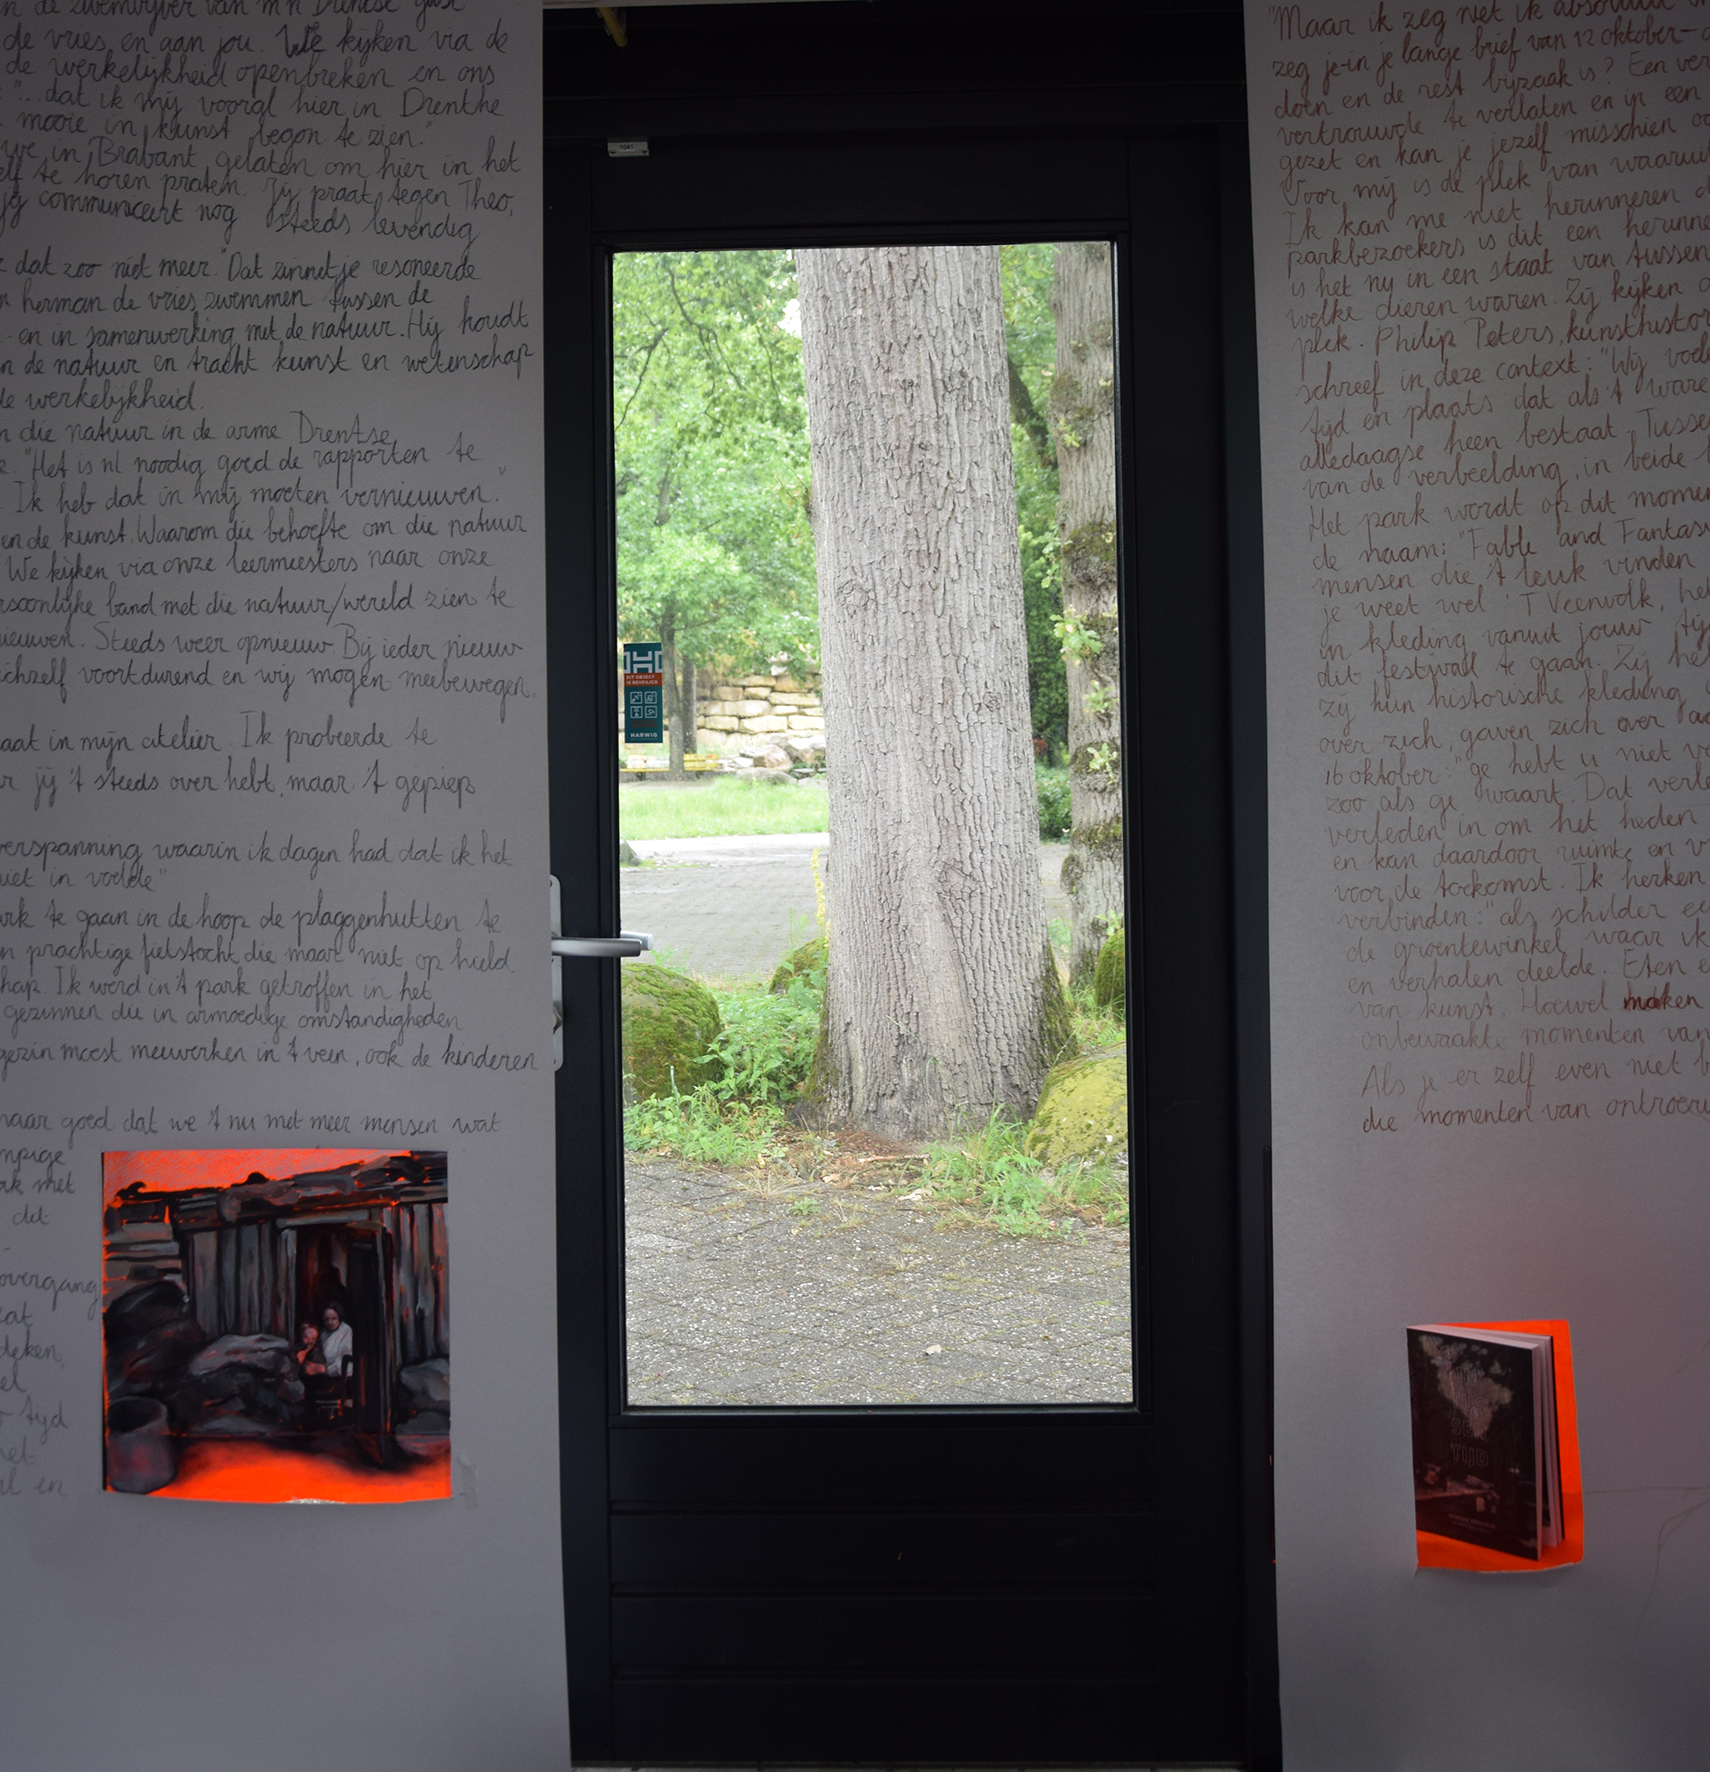 de zwemvijver van m'n Drentse gast
de vries, en aan jou. We kijken via de
de werkelijkheid openbreken en ons
"...dat ik mij vooral hier in Drenthe
mooie in kunst begon te zien."
we in Brabant gelaten om hier in het
elf te horen praten. Jij praat tegen Theo,
jij communiceert nog steeds levendig
dat zoo niet meer." Dat zinnetje resoneerde
herman de vries, zwemmen tussen de
en in samenwerking met de natuur. Hij houdt
de natuur en tracht kunst en wetenschap
de werkelijkheid.
die natuur in de arme Drentse
"Het is nl noodig goed de rapporten te
Ik heb dat in mij moeten vernieuwen."
en de kunst. Waarom die behoefte om die natuur
We kijken via onze leermeesters naar onze
rsoonlijke band met die natuur/wereld zien te
nieuwen. Steeds weer opnieuw. Bij ieder nieuw
ichzelf voortdurend en wij mogen meebewegen.
aat in mijn atelier. Ik probeerde te
jij 't steeds over hebt, maar 't gepiep
verspanning waarin ik dagen had dat ik het
niet in voelde"
ark te gaan in de hoop de plaggenhutten te
n prachtige fietstocht die maar niet op hield.
hap. Ik werd in 't park getroffen in het
gezinnen die in armoedige omstandigheden
gezin moest meewerken in 't veen, ook de kinderen
naar goed dat we 't nu met meer mensen wat
mpige
ak met
dit
overgang
zat
deken,
el
tijd
het
al en
1041
DIT OBJECT
IS BEVEILIGD
HARWIG
"Maar ik zeg niet ik absoluut
zeg je-in je lange brief van 12 oktober-
doen en de rest bijzaak is? Een ver
vertrouwde te verlaten en in een
gezet en kan je jezelf misschien
Voor mij is de plek van waaruit
Ik kan me niet herinneren
parkbezoekers is dit een herinne
is het nu in een staat van tussen
welke dieren waren. Zij kijken
plek. Philip Peters, kunsthistor
schreef in deze context: "Wij
tijd en plaats dat als 't ware
alledaagse heen bestaat. Tusse
van de verbeelding, in beide
Het park wordt op dit momen
de naam: "Fable and Fantas
mensen die 't leuk vinden
je weet wel 'T Veenvolk, he
in kleding vanuit jouw tij
dit festival te gaan. Zij he
zij hun historische kleding
over zich, gaven zich over
16 oktober: "ge hebt u niet
zoo als ge waart. Dat verle
verleden in om het heden
en kan daardoor ruimte en
voor de toekomst. Ik herken
verbinden: "als schilder
de groentewinkel waar ik
en verhalen deelde. Eten
van kunst. Hoewel maken
onbewaakte momenten van
Als je er zelf even niet
die momenten van ontroeri
TIJD